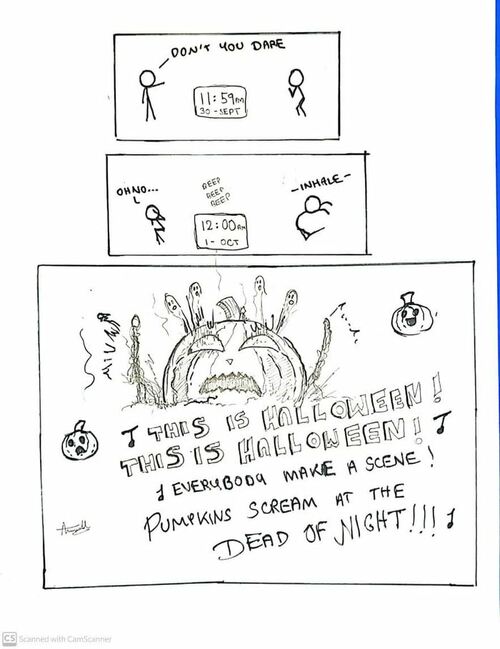 DON'T YOU DARE
11:59PM
30-SEPT
OH NO...
BEEP
BEEP
BEEP
-INHALE-
12:00AM
1- OCT
THIS IS HALLOWEEN!
THIS IS HALLOWEEN!
EVERYBODY MAKE A SCENE!
PUMPKINS SCREAM AT THE
DEAD OF NIGHT!!!
CS Scanned with CamScanner